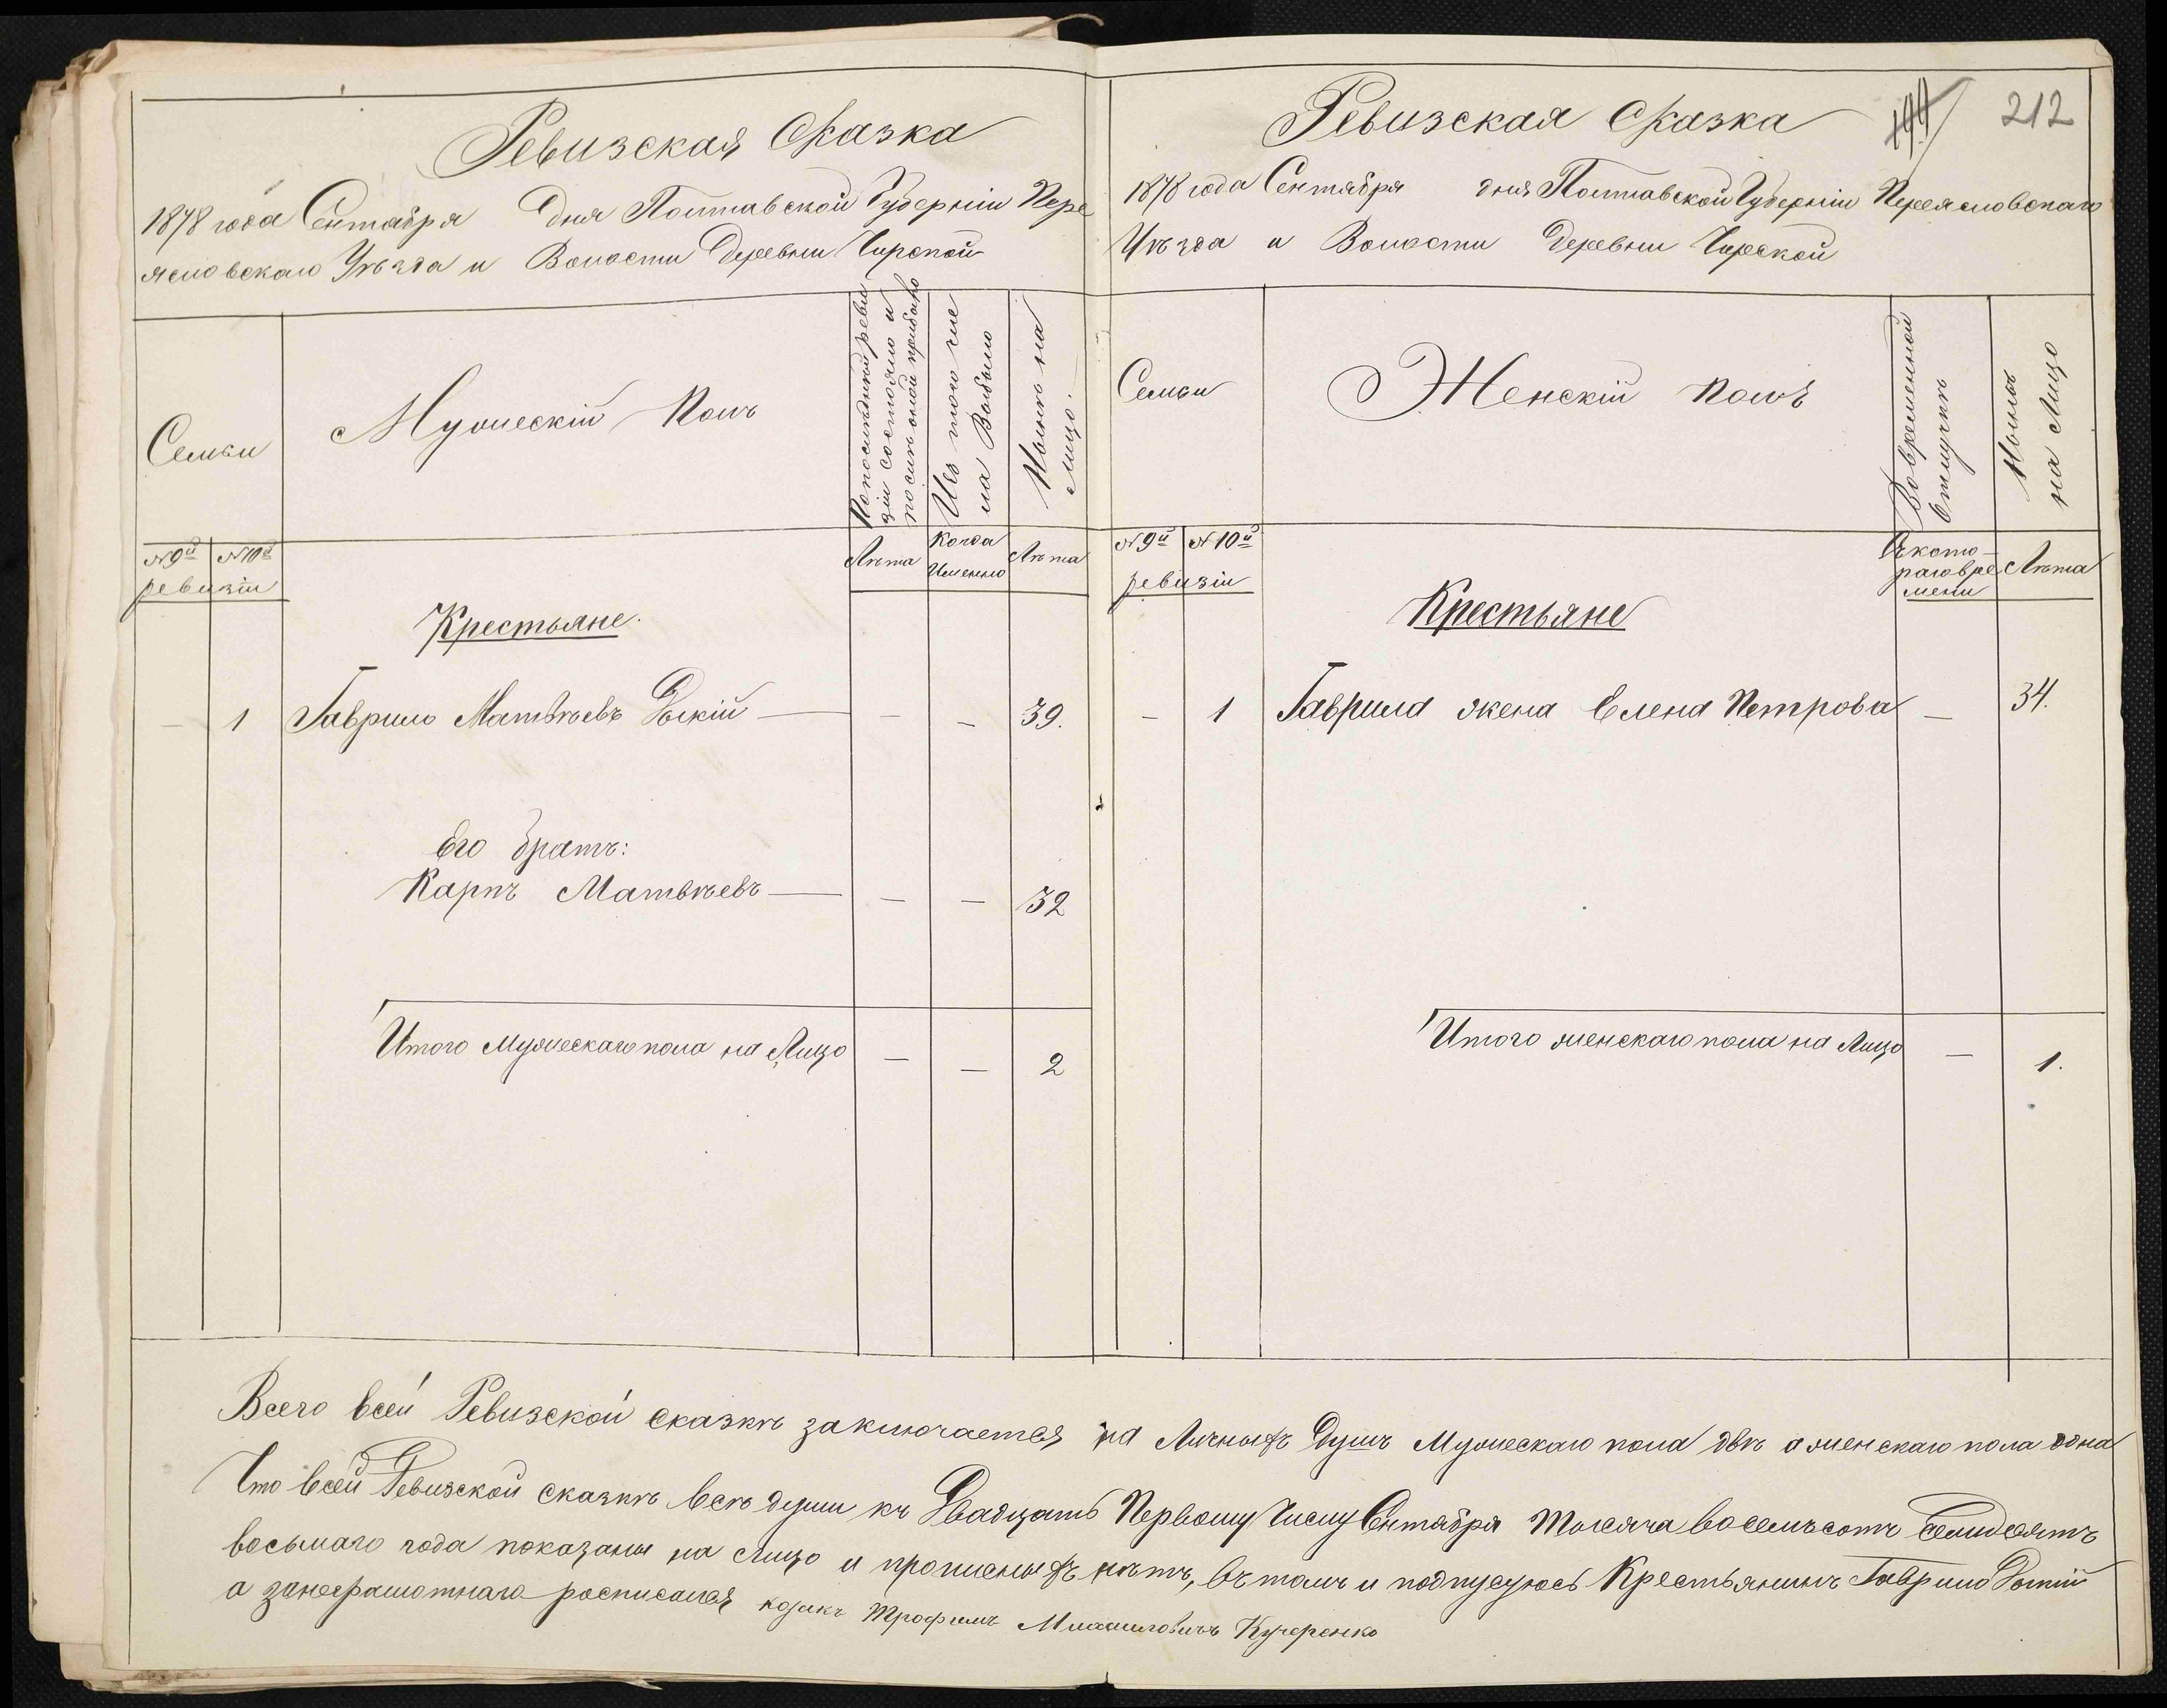 Ревизская Сказка
1878 года Сентября дня Полтавской Губерніи Пере
яславскаго Уѣзда и Волости Деревни Чирской
Семьи
Мужескій Полъ
По последней реви
зіи состояло и
послѣ оной прибыло
Изъ того чис
ла Выбыло
Нынѣ на
лицо.
№ 9й № 10й
ревизіи
Лѣта
Когда
Именно
Лѣта
Крестьяне.
— 1 Гаврило Матвѣевъ Дикій — — — 39.
Его братъ:
Карпъ Матвѣевъ — — — 32
Итого Мужескаго пола на Лицо — — 2
199 212
Ревизская Сказка
1878 года Сентября дня Полтавской Губерніи Переясловскаго
Уѣзда и Волости Деревни Чирской
Семьи
Женскій полъ
Во временной
отлучкѣ
Нынѣ
на Лицо
№ 9й № 10й
ревизіи
Съ кото-
раго вре
мени
Лѣта
Крестьяне
— 1 Гаврила жена Елена Петрова — 34.
Итого женскаго пола на Лицо — 1.
Всего в сей Ревизской сказкѣ заключается на Личныхъ Душъ Мужескаго пола двѣ а женскаго пола одна
Что в сей Ревизской сказкѣ всѣ души къ Двадцать Первому Числу Сентября Тысяча восемьсотъ Семидесятъ
восьмаго года показаны на лицо и прописныхъ нѣтъ, въ томъ и подпусуюсь Крестьянинъ Гаврило Дикій
а занеграмотнаго росписался козакъ Трофимъ Михаиловичъ Кучеренко